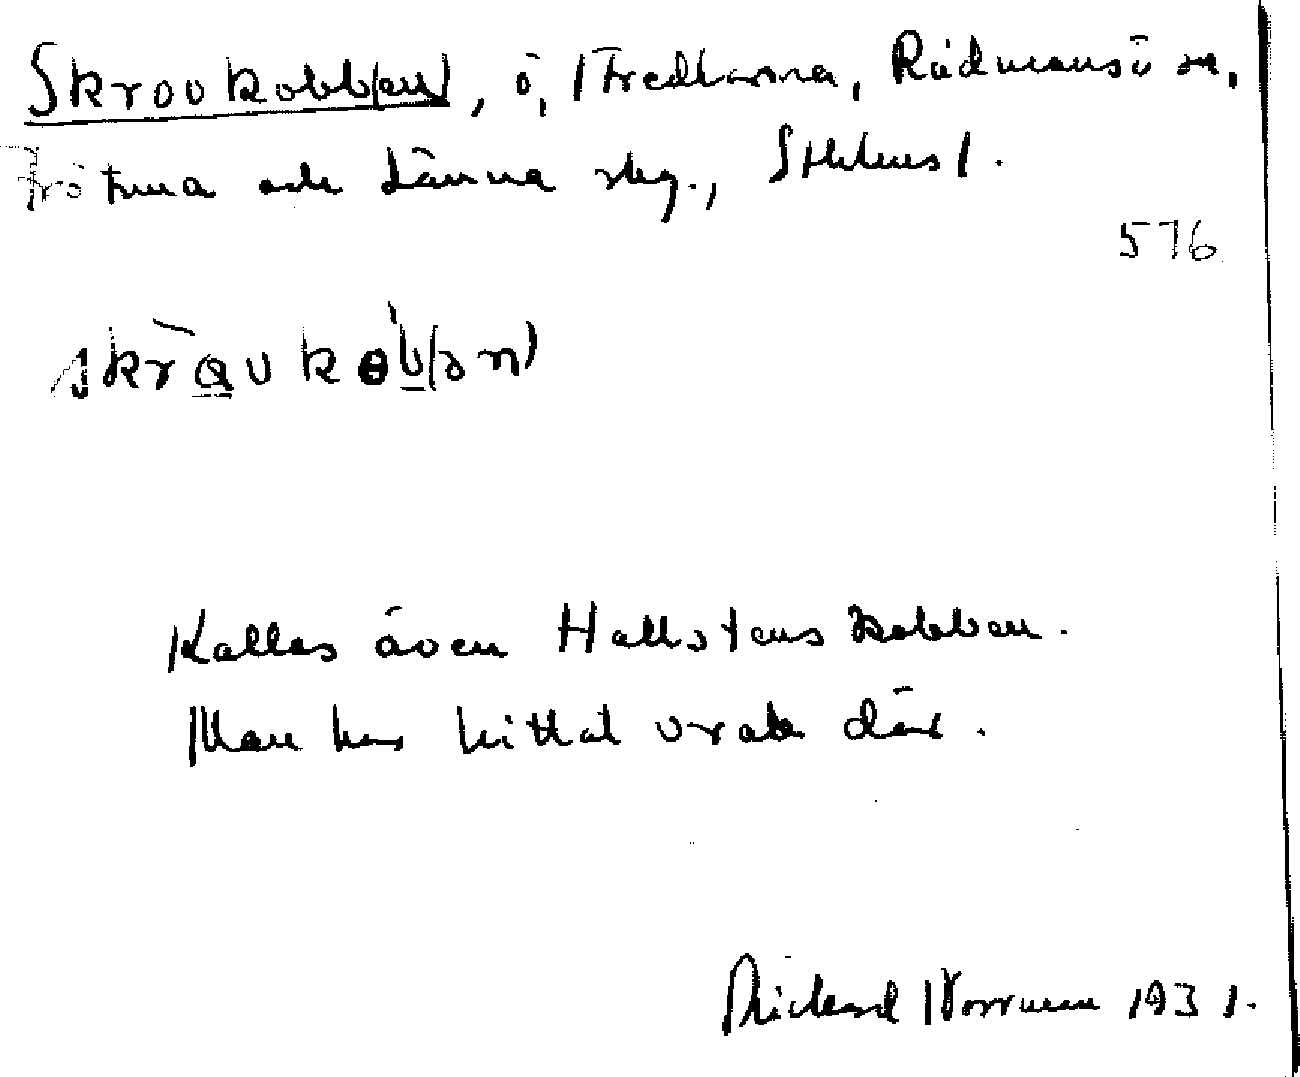 Skrovkobb(en), ö, Fredlarna, Rådmansö sn,
Frötuna och Länna skg., Sthlms l.
576
skr̀ɑvkɵb(ən)
Kallas även Hallstens kobben.
Man har hittat vrak där.
Rickard Norrman 1931.